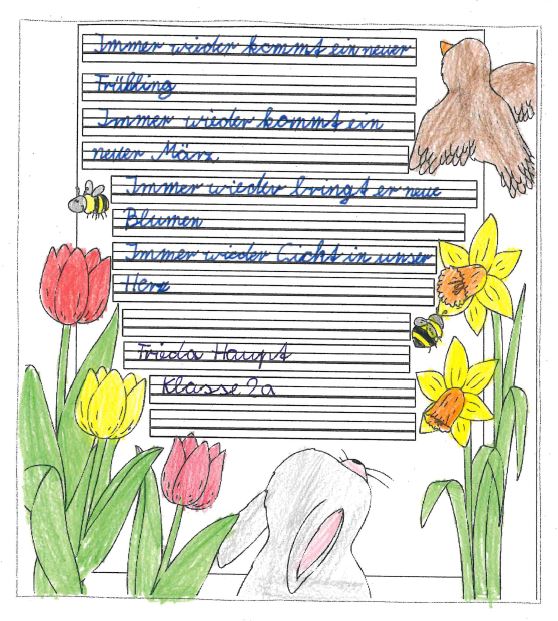 Immer wieder kommt ein neuer
Frühling
Immer wieder kommt ein
neuer März
Immer wieder bringt er neue
Blumen
Immer wieder Licht in unser
Herz
Frieda Haupt
Klasse 2a